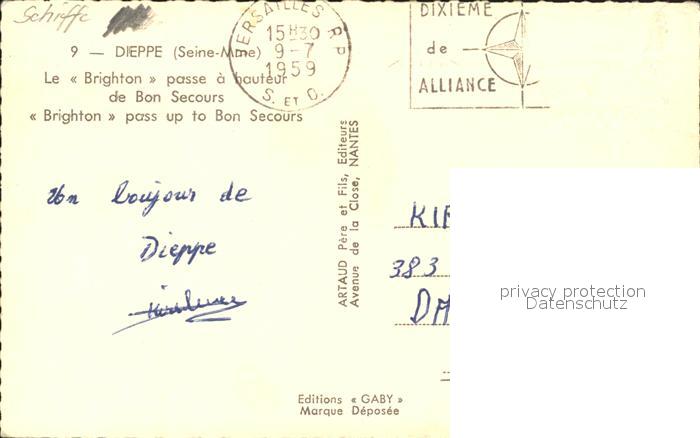 Schiffe
9 — DIEPPE (Seine-Mme)
Le « Brighton » passe à hauteur
de Bon Secours
« Brighton » pass up to Bon Secours
VERSAILLES R P
15H30
9-7
1959
S. ET O.
DIXIÈME
de
ALLIANCE
ARTAUD Père et Fils, Editeurs
Avenue de la Close, NANTES
Un boujour de
Dieppe
383
privacy protection
Datenschutz
Editions « GABY »
Marque Déposée